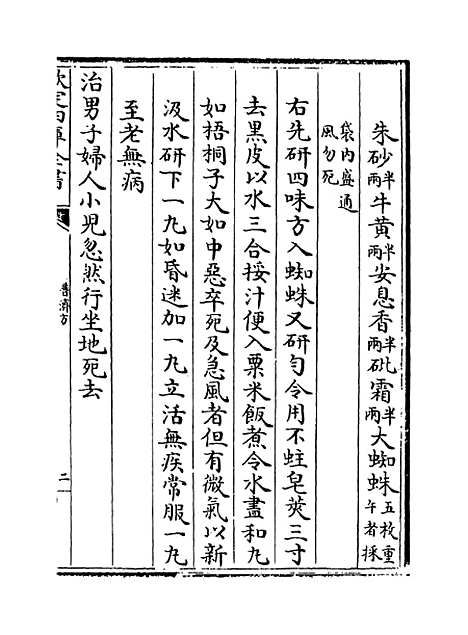 朱砂半兩牛黄半兩安息香半兩砒霜半兩大蜘蛛五枚重午者採
袋内盛通風勿死
右先研四味方入蜘蛛又研匀令用不蛀皂莢三寸
去黑皮以水三合挼汁便入粟米飯煮令水盡和丸
如梧桐子大如中惡卒死及急風者但有微氣以新
汲水研下一丸如昏迷加一丸立活無疾常服一丸
至老無病
治男子婦人小兒忽然行坐地死去
欽定四庫全書
普濟方
二